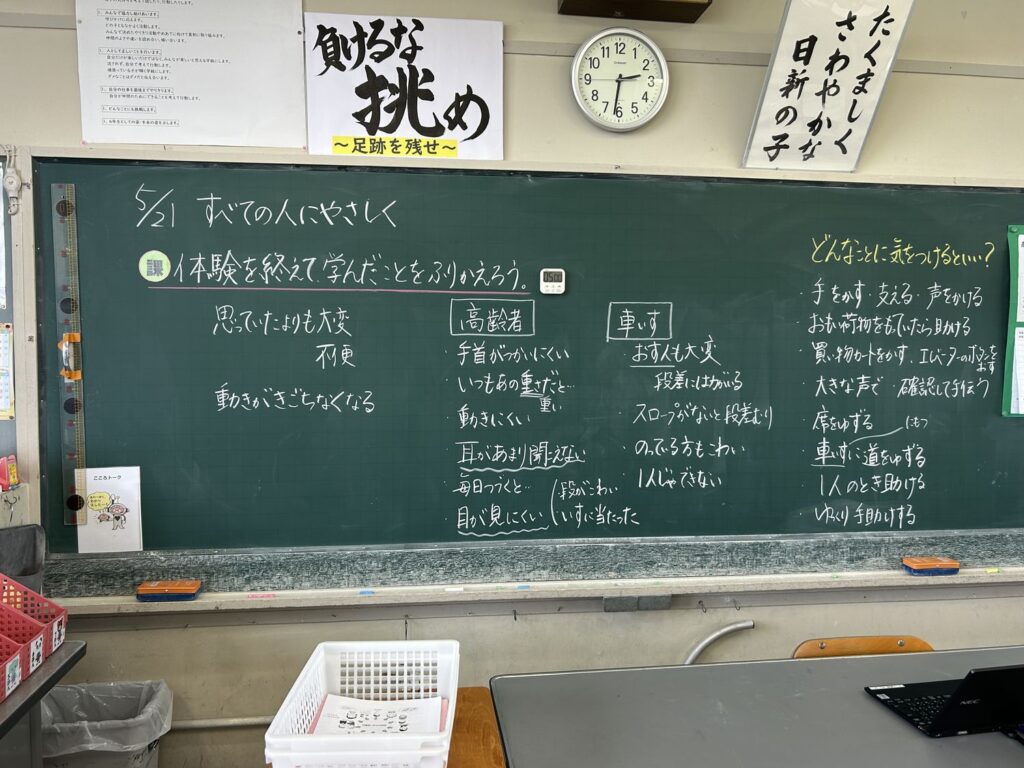 負けるな
挑め
～足跡を残せ～
たくましく
さわやかな
日新の子
5/21 すべての人にやさしく
課 体験を終えて、学んだことをふりかえろう。
05:00
思っていたよりも大変
不便
動きがぎこちなくなる
高齢者
・手首がつかいにくい
・いつもあの重さだと…
重い
・動きにくい
・耳があまり聞こえない
・毎日つづくと…
・目が見にくい
段がこわい
いすに当たった
車いす
・おす人も大変
段差にはがいる
・スロープがないと段差むり
・のってる方もこわい
・1人じゃできない
どんなことに気をつけるといい？
・手をかす・支える・声をかける
・おもい荷物をもっていたら助ける
・買い物カートをかす、エレベーターのボタンをおす
・大きな声で・確認して手伝う
・席をゆずる
にもつ
・車いすに道をゆずる
・1人のとき助ける
・ゆっくり手助けする
こころトーク
NEC